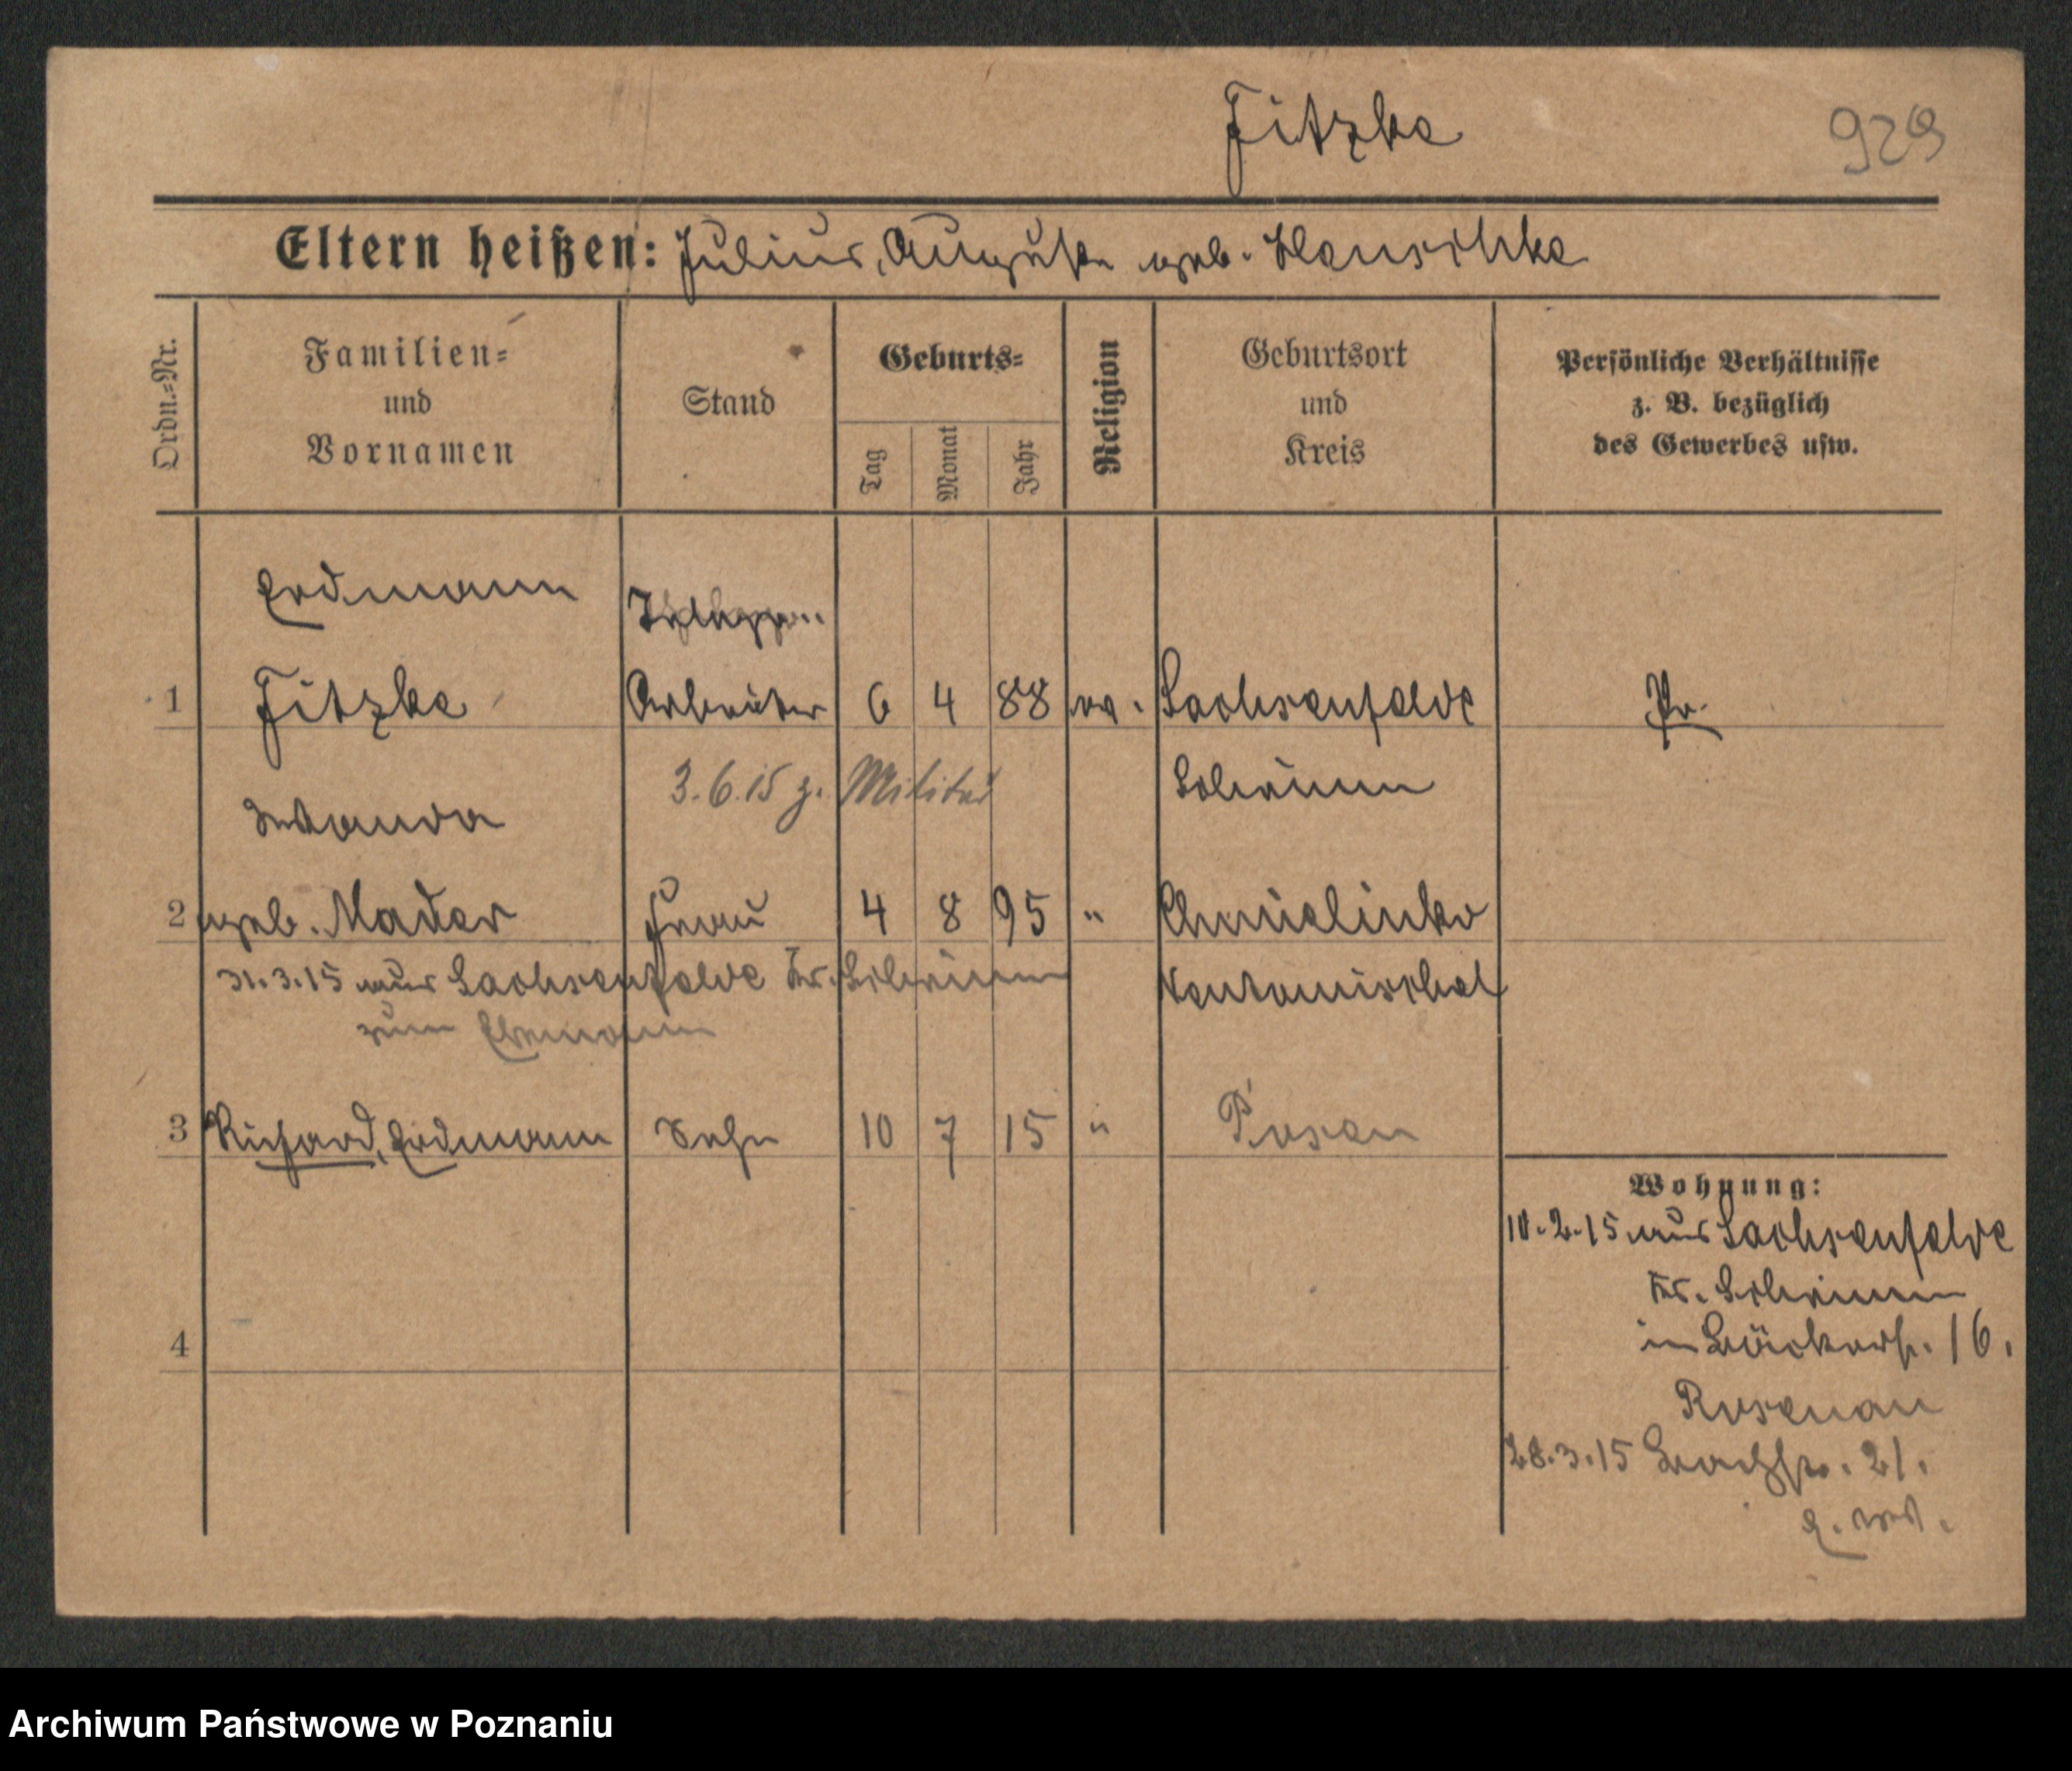 Fitzke
929
Eltern heißen: Julius, Auguste geb. Hanschke
Ordn.-Nr.
Familien-
und
Vornamen
Stand
Geburts-
Tag
Monat
Jahr
Religion
Geburtsort
und
Kreis
Persönliche Verhältnisse
z. B. bezüglich
des Gewerbes usw.
Erdmann
1 Fitzke Arbeiter 6 4 88 ev. Sachsenfelde Pr.
3.6.15 z. Militär Schrimm
Wanda
2 geb. Mader Frau 4 8 95 " Chmielinko
31.3.15 aus Sachsenfelde Kr. Schrimm Neutomischel
zum Ehemann
3 Richard, Erdmann Sohn 10 7 15 " Posen
Wohnung:
10.2.15 aus Sachsenfelde
Kr. Schrimm
in Bäckerstr. 16.
Rosenau
28.3.15 21.
4
Archiwum Państwowe w Poznaniu